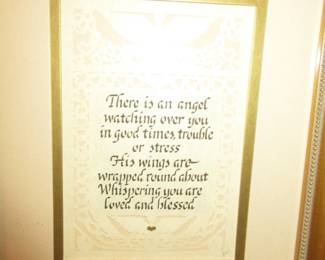 There is an angel
watching over you
in good times, trouble
or stress
His wings are
wrapped round about
Whispering you are
loved and blessed